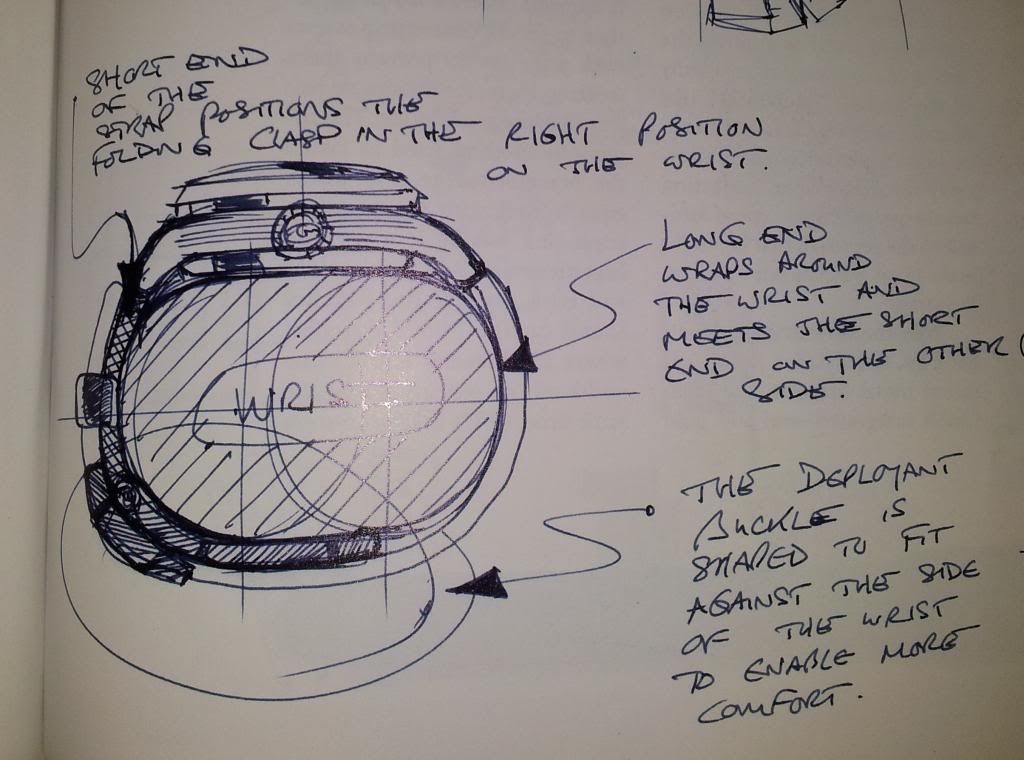 SHORT END
OF THE
STRAP POSITIONS THE
FOLDING CLASP IN THE RIGHT POSITION
ON THE WRIST.
G
LONG END
WRAPS AROUND
THE WRIST AND
MEETS THE SHORT
END ON THE OTHER
SIDE.
WRIS
THE DEPLOYANT
BUCKLE IS
SHAPED TO FIT
AGAINST THE SIDE
OF THE WRIST
TO ENABLE MORE
COMFORT.